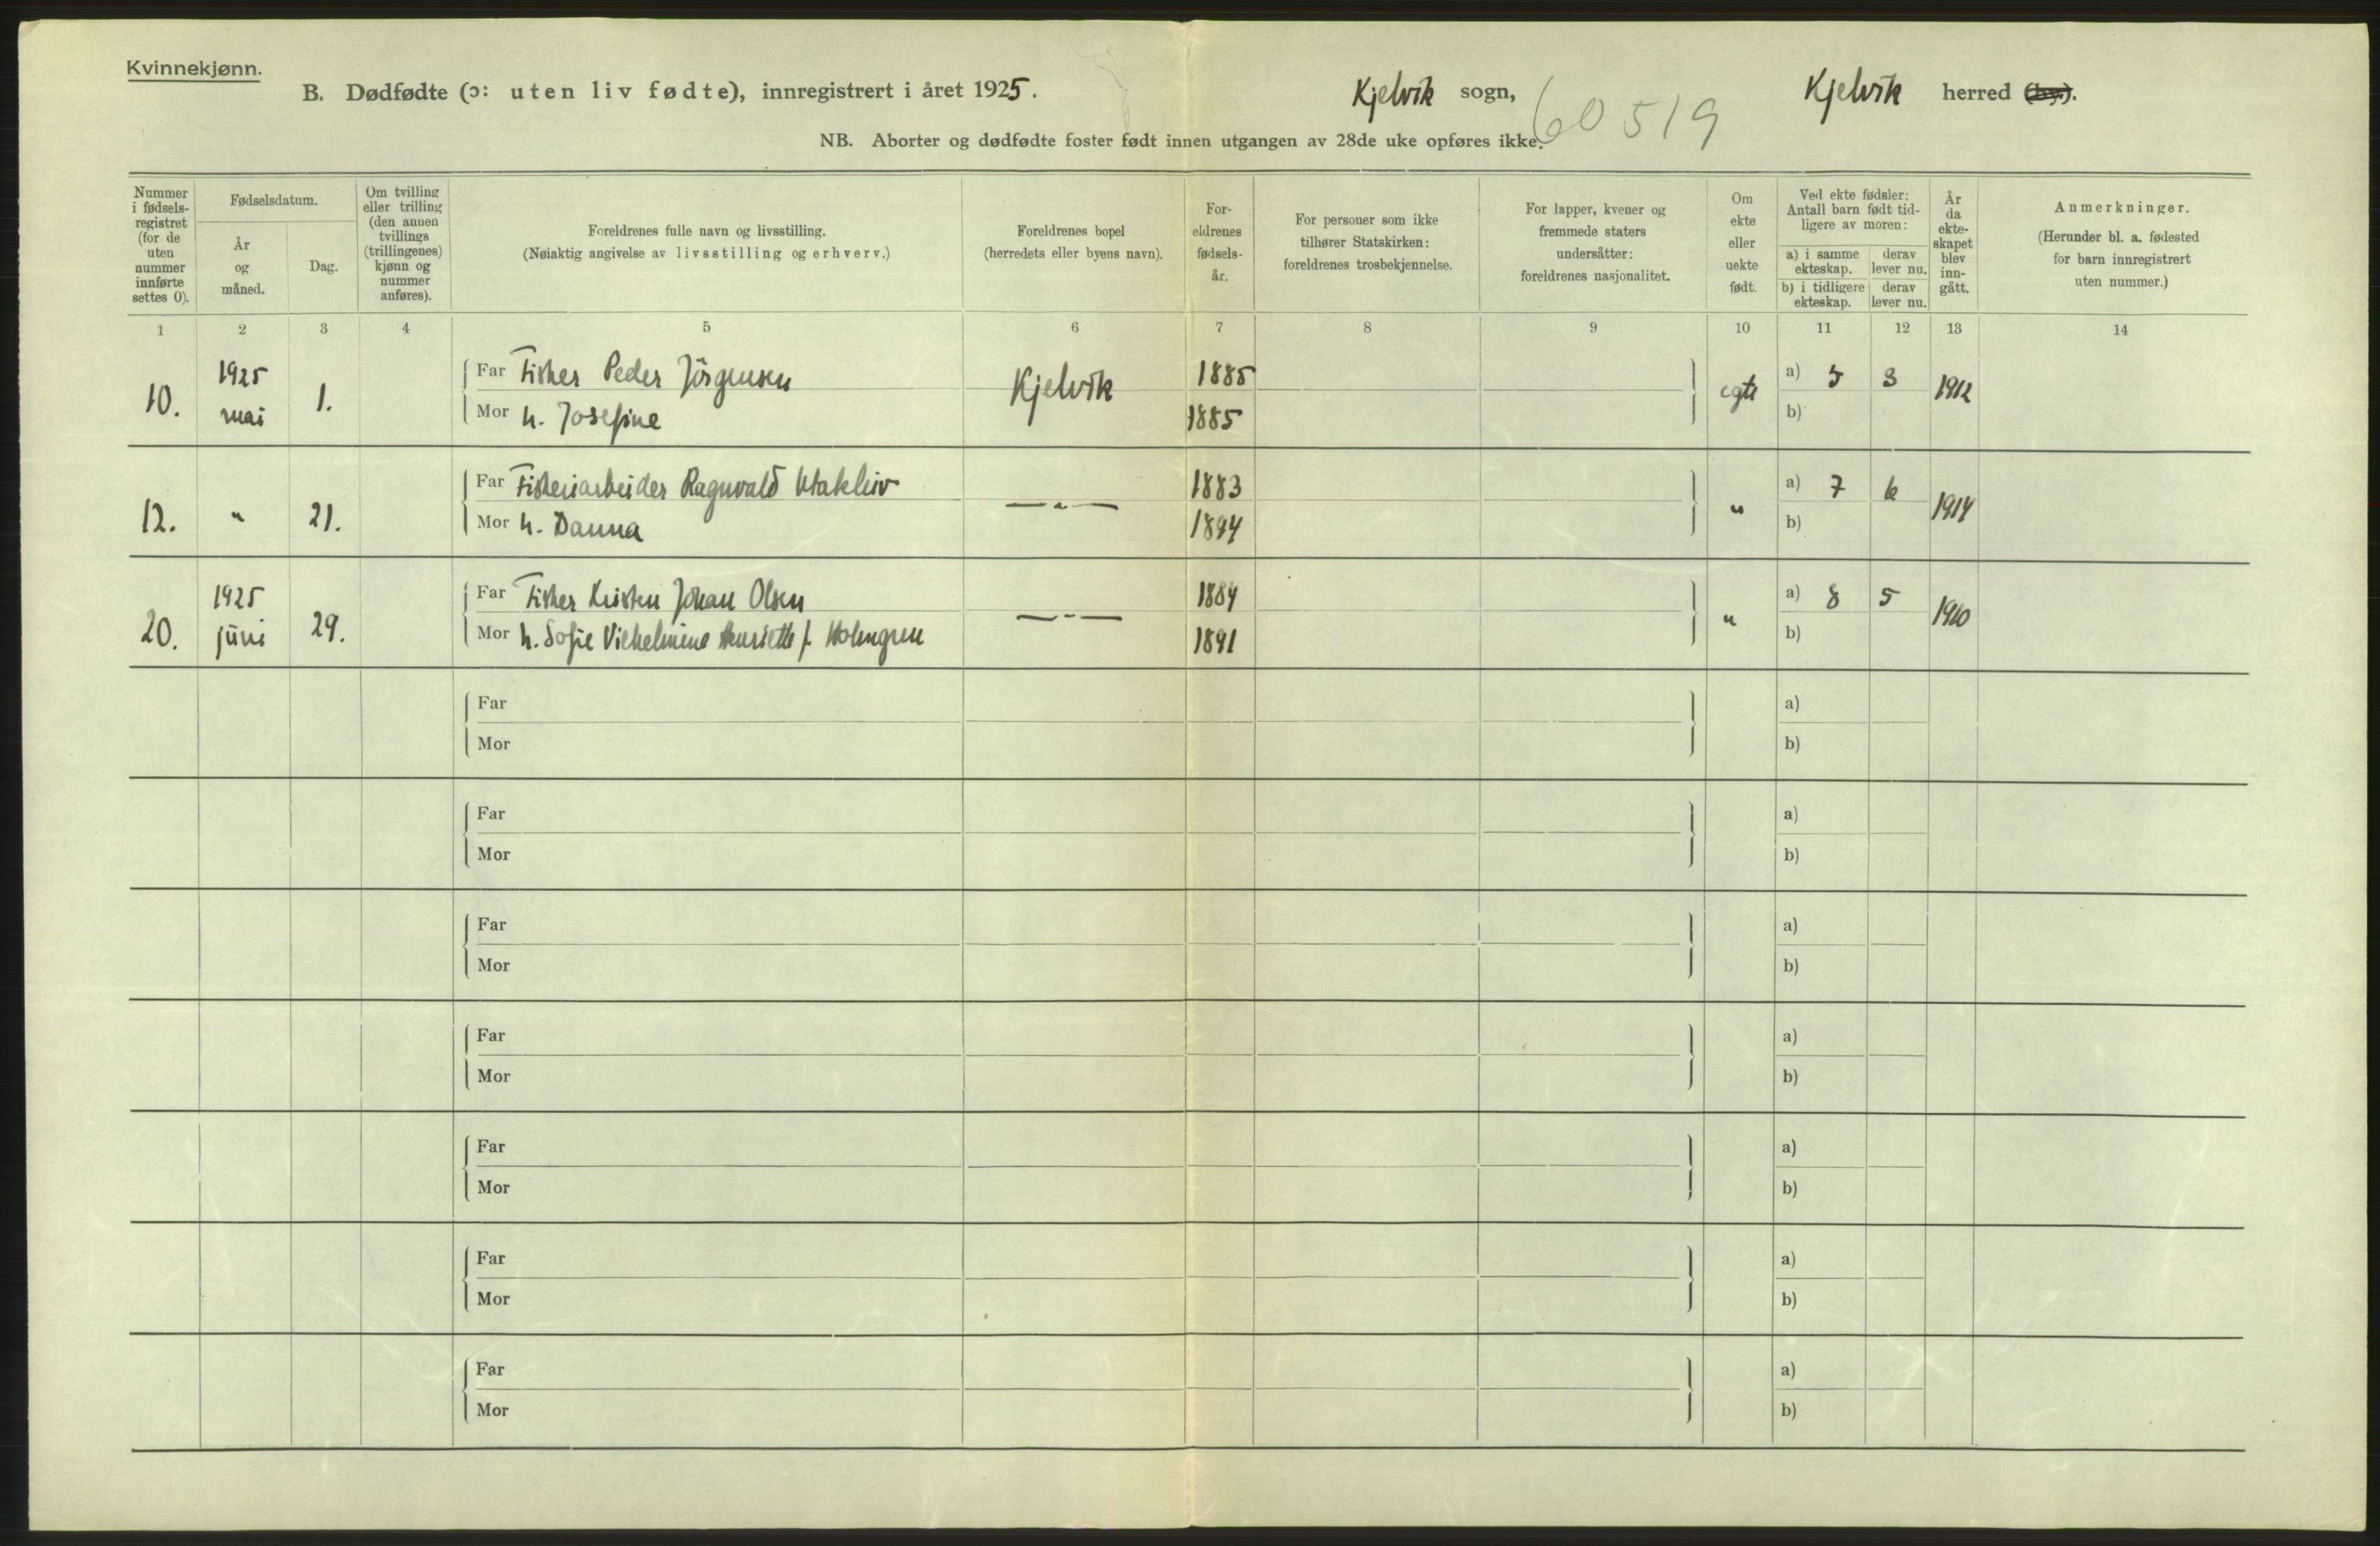 Kvinnekjønn.
B. Dødfødte (ɔ: uten liv fødte), innregistrert i året 1925.
Kjelvik sogn,
Kjelvik herred (by).
60519
NB. Aborter og dødfødte foster født innen utgangen av 28de uke opføres ikke.
Nummer i fødsels-registret (for de uten nummer innførte settes 0).
Fødselsdatum.
År og måned.
Dag.
Om tvilling eller trilling (den annen tvillings (trillingenes) kjønn og nummer anføres).
Foreldrenes fulle navn og livsstilling.
(Nøiaktig angivelse av livsstilling og erhverv.)
Foreldrenes bopel
(herredets eller byens navn).
For-eldrenes fødsels-år.
For personer som ikke tilhører Statskirken: foreldrenes trosbekjennelse.
For lapper, kvener og fremmede staters undersåtter: foreldrenes nasjonalitet.
Om ekte eller uekte født.
Ved ekte fødsler: Antall barn født tid-ligere av moren:
a) i samme ekteskap.
derav lever nu.
b) i tidligere ekteskap.
derav lever nu.
År da ekte-skapet blev inn-gått.
Anmerkninger.
(Herunder bl. a. fødested for barn innregistrert uten nummer.)
1 2 3 4 5 6 7 8 9 10 11 12 13 14
10. 1925 mai 1.
Far Fisker Peder Jörgensen Kjelvik 1885 egte a) 5 3 1912
Mor h. Josefine 1885 b)
12. " 21.
Far Fiskeriarbeider Ragnvald Utakleiv —"— 1883 " a) 7 6 1914
Mor h. Danna 1894 b)
20. 1925 juni 29.
Far Fisker Kristen Johan Olsen —"— 1884 " a) 8 5 1910
Mor h. Sofie Vilhelmine Henriette f. Holmgren 1891 b)
Far a)
Mor b)
Far a)
Mor b)
Far a)
Mor b)
Far a)
Mor b)
Far a)
Mor b)
Far a)
Mor b)
Far a)
Mor b)